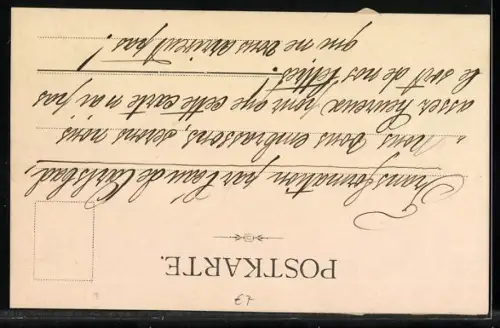 POSTKARTE.
Transformation par l'eau de Carlsbad,
Nous vous embrassons, serons nous
asser heureux pour que cette carte n'ai pas
le sort de nos lettres!
qui ne vous arrivent pas!